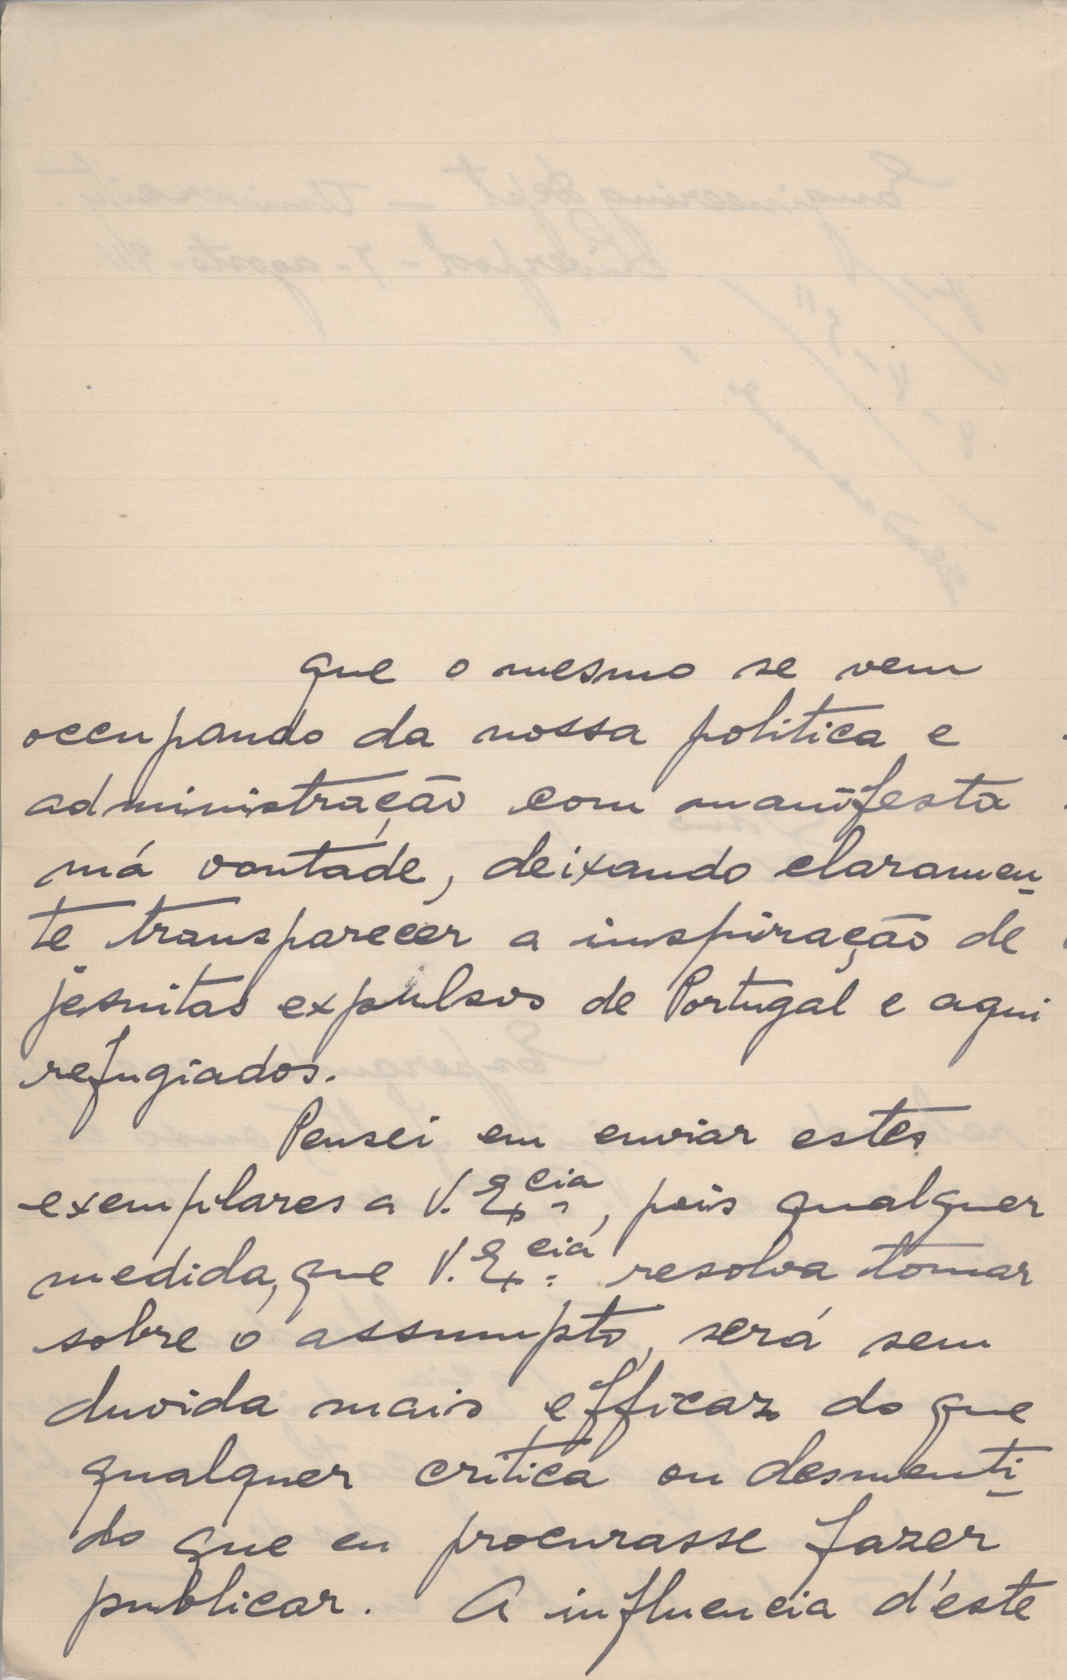 que o mesmo se vem
occupando da nossa politica e
administração com manifesta
má vontade, deixando claramen-
te transparecer a inspiração de
jesuitas expulsos de Portugal e aqui
refugiados.
Pensei em enviar estes
exemplares a V. Ex.cia, pois qualquer
medida, que V. Ex.cia resolva tomar
sobre o assumpto, será sem
duvida mais efficaz do que
qualquer critica ou desmenti-
do que eu procurasse fazer
publicar. A influencia d'este